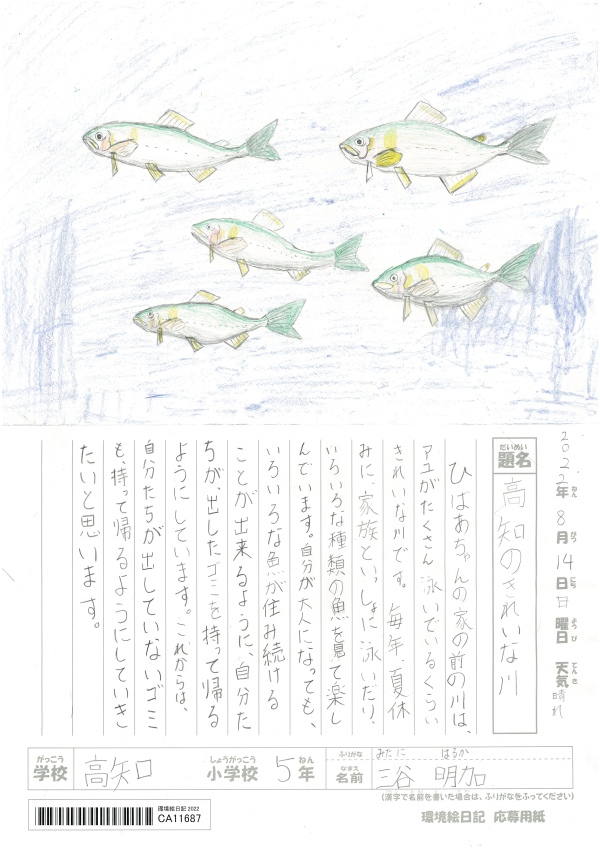 2022年ねん 8月がつ 14日にち 日曜日ようび 天気てんき 晴れ
だいめい
題名 高知のきれいな川
ひばあちゃんの家の前の川は、
アユがたくさん泳いでいるくらい
きれいな川です。毎年、夏休
みに、家族といっしょに泳いだり、
いろいろな種類の魚を見て楽し
んでいます。自分が大人になっても、
いろいろな魚が住み続ける
ことが出来るように、自分た
ちが、出したゴミを持って帰る
ようにしています。これからは、
自分たちが出していないゴミ
も、持って帰るようにしていき
たいと思います。
がっこう しょうがっこう ねん
学校 高知 小学校 5年
ふりがな みたに はるか
なまえ
名前 三谷 明加
(漢字で名前を書いた場合は、ふりがなをふってください)
環境絵日記 2022
CA11687
環境絵日記 応募用紙